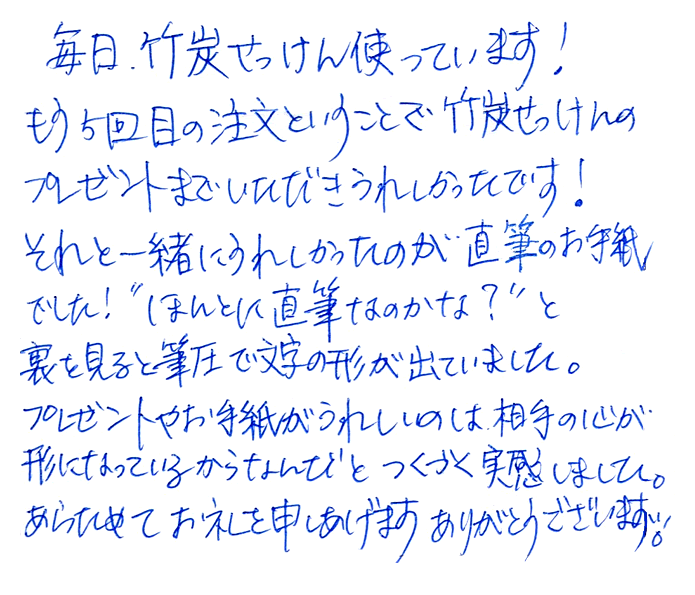 毎日、竹炭せっけん使っています!
もう5回目の注文ということで竹炭せっけんの
プレゼントまでいただきうれしかったです!
それと一緒にうれしかったのが直筆のお手紙
でした!"ほんとに直筆なのかな?"と
裏を見ると筆圧で文字の形が出ていました。
プレゼントやお手紙がうれしいのは、相手の心が
形になっているからなんだと つくづく実感しました。
あらためてお礼を申しあげます ありがとうございます!!